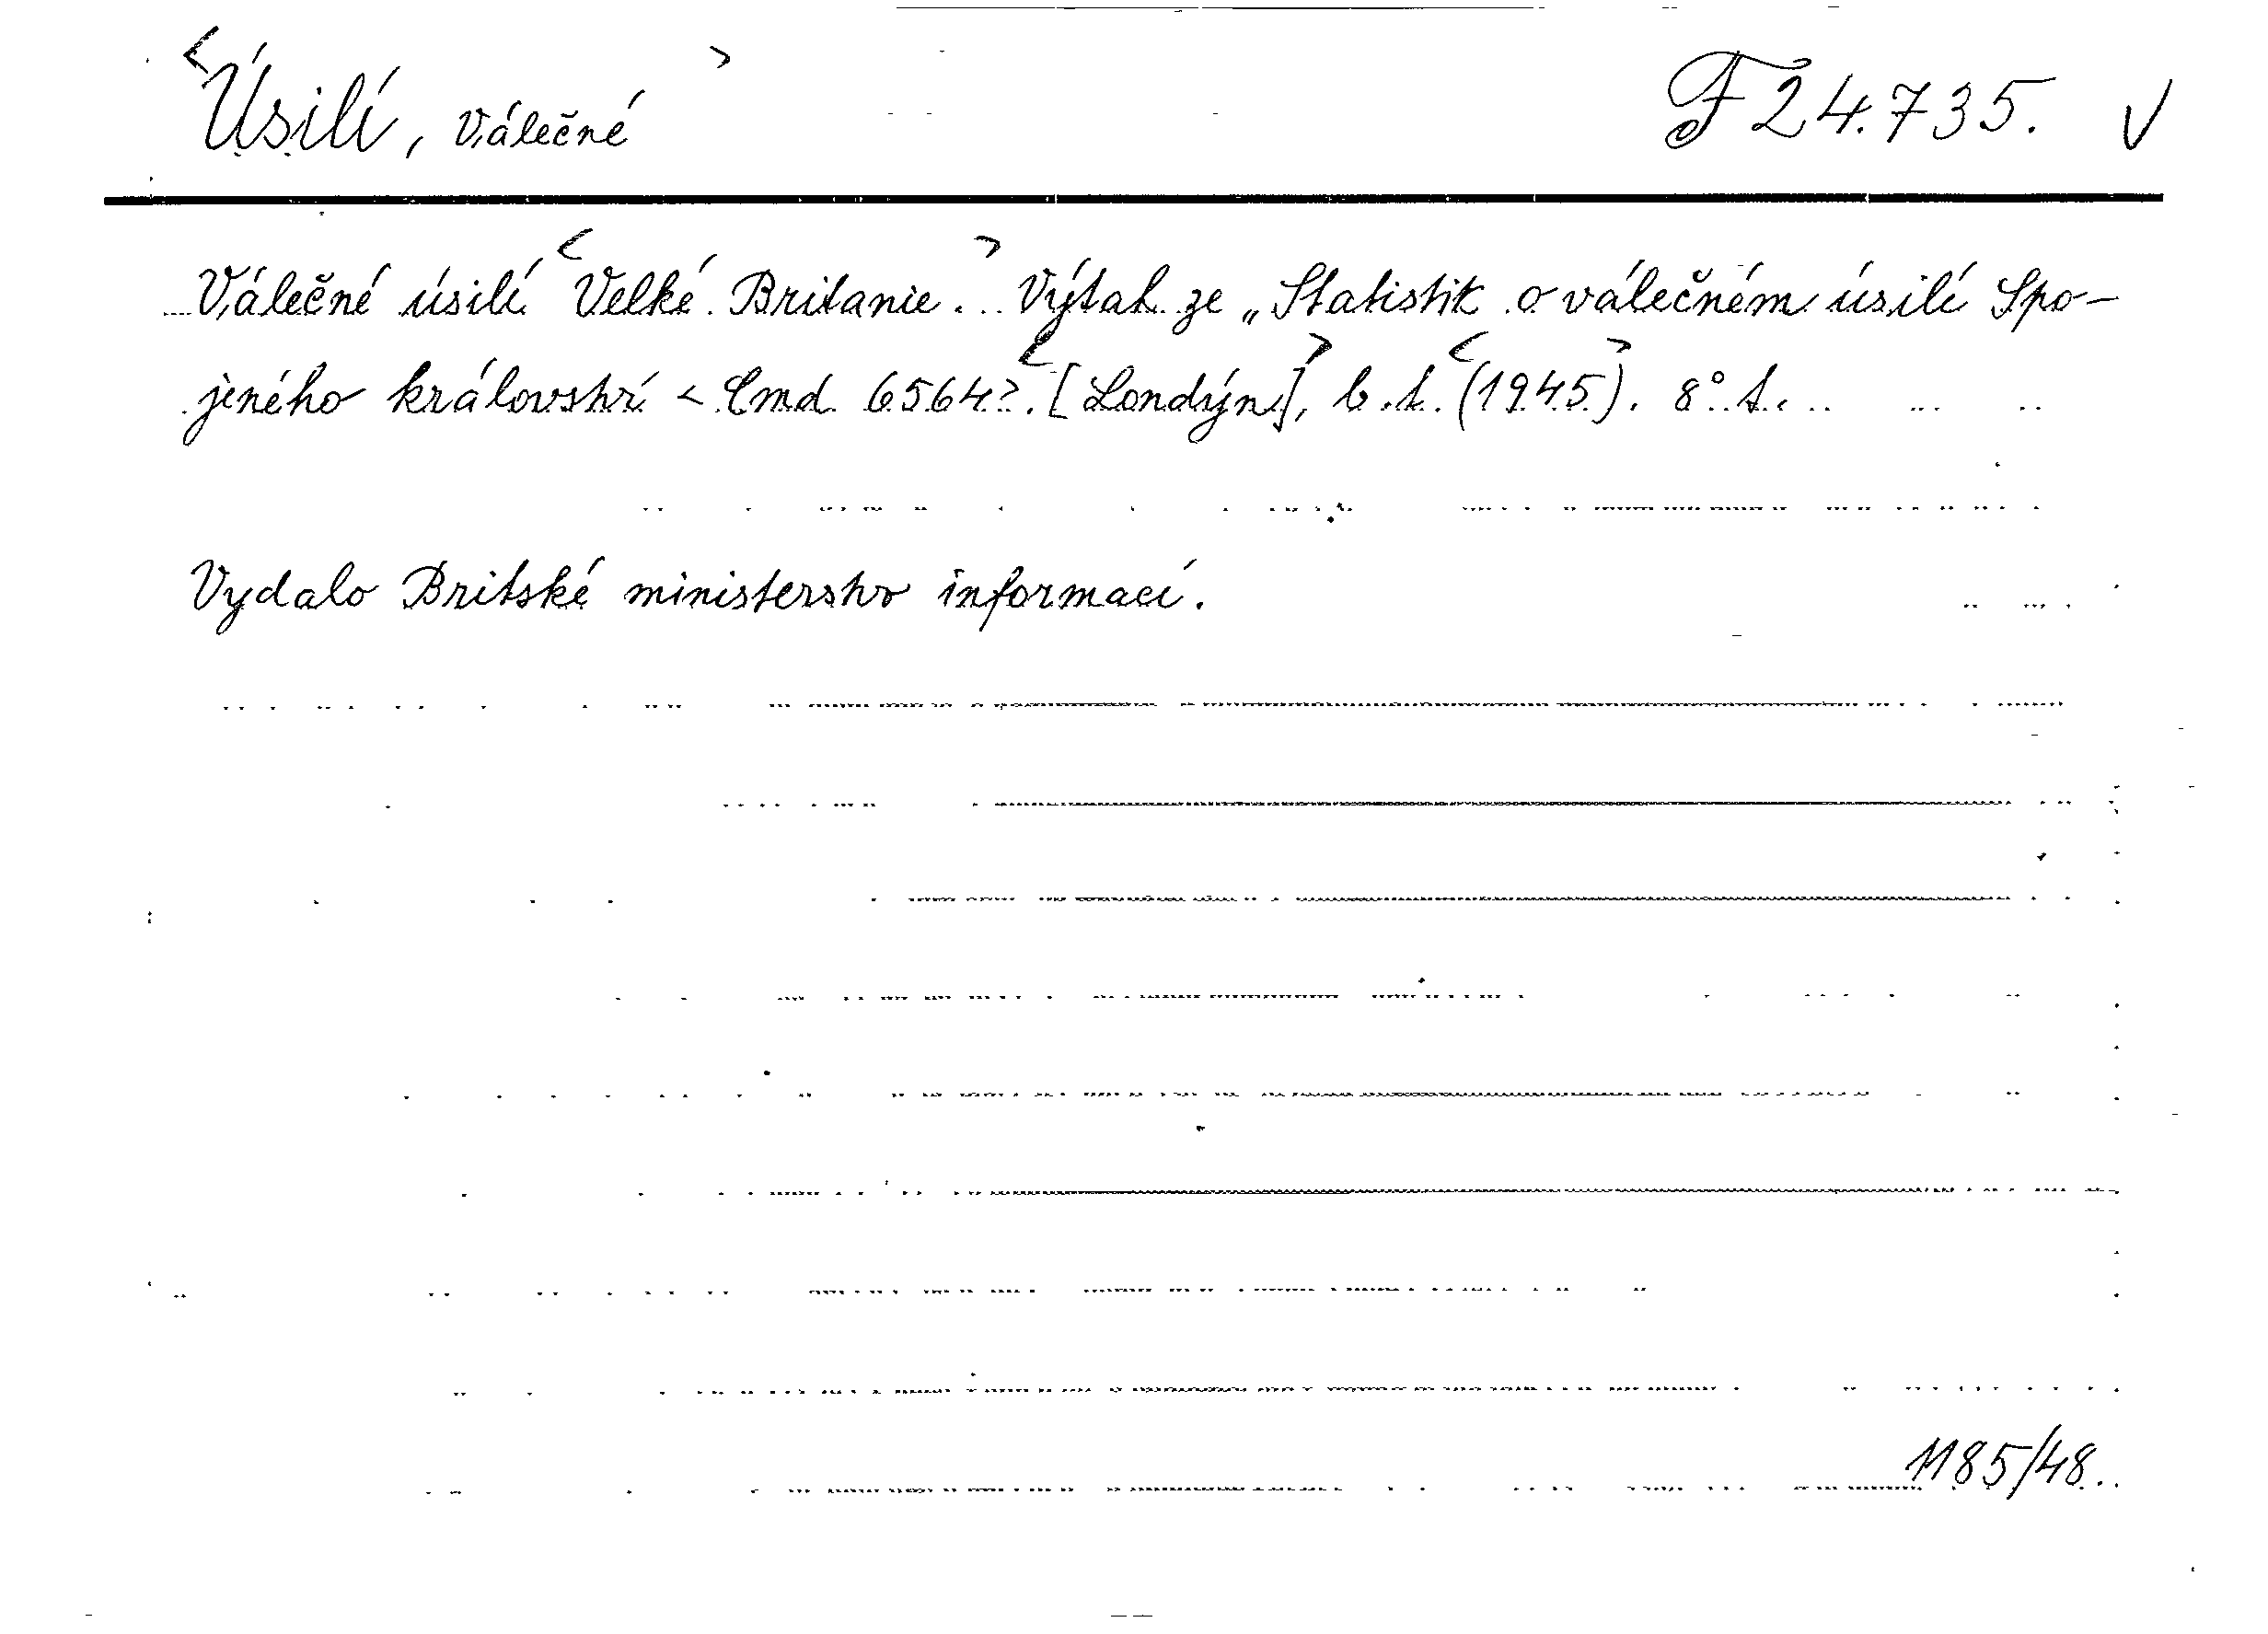 <Úsilí, válečné> F 24.735. V
Válečné úsilí <Velké Britanie.> Výtah ze „Statistik o válečném úsilí Spo-
jeného království < Cmd 6564>. <[Londýn],> b. t. <(1945)>. 8° s.
Vydalo Britské ministerstvo informací.
1185/48.